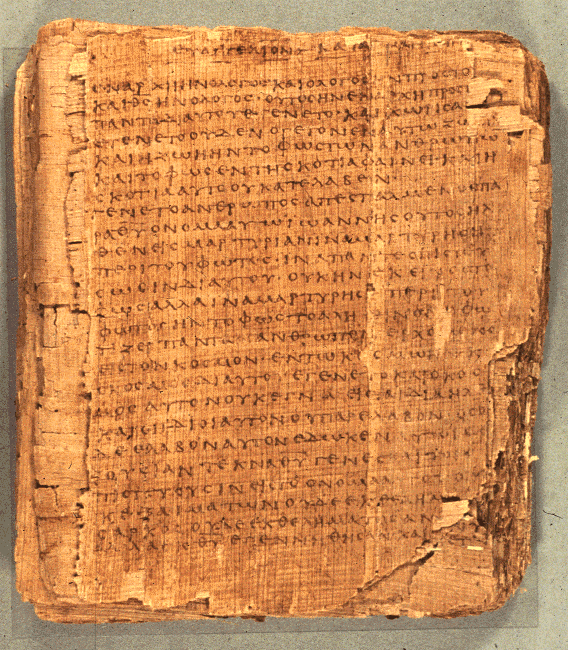 ΕΥΑΓΓΕΛΙΟΝ ΚΑΤΑ
ΕΝ ΑΡΧΗ ΗΝ Ο ΛΟΓΟΣ ΚΑΙ Ο ΛΟΓΟΣ ΗΝ ΠΡΟΣ ΤΟ
ΚΑΙ ΘΣ ΗΝ Ο ΛΟΓΟΣ · ΟΥΤΟΣ ΗΝ ΕΝ ΑΡΧΗ ΠΡΟΣ
ΠΑΝΤΑ ΔΙ ΑΥΤΟΥ ΕΓΕΝΕΤΟ · ΚΑΙ ΧΩΡΙΣ Α
ΕΓΕΝΕΤΟ ΟΥΔΕΝ Ο ΓΕΓΟΝΕΝ ΕΝ ΑΥΤΩ ΖΩ
ΚΑΙ Η ΖΩΗ ΗΝ ΤΟ ΦΩΣ ΤΩΝ ΑΝΘΡΩΠΩ
ΚΑΙ ΤΟ ΦΩΣ ΕΝ ΤΗ ΣΚΟΤΙΑ ΦΑΙΝΕΙ · ΚΑΙ Η
ΣΚΟΤΙΑ ΑΥΤΟ ΟΥ ΚΑΤΕΛΑΒΕΝ
ΕΓΕΝΕΤΟ ΑΝΘΡΩΠΟΣ ΑΠΕΣΤΑΛΜΕΝΟΣ ΠΑ
ΡΑ ΘΥ ΟΝΟΜΑ ΑΥΤΩ ΙΩΑΝΝΗΣ ΟΥΤΟΣ ΗΛ
ΘΕΝ ΕΙΣ ΜΑΡΤΥΡΙΑΝ ΙΝΑ ΜΑΡΤΥΡΗΣΗ
ΠΕΡΙ ΤΟΥ ΦΩΤΟΣ · ΙΝΑ ΠΑΝΤΕΣ ΠΙΣΤΕΥ
ΣΩΣΙΝ ΔΙ ΑΥΤΟΥ · ΟΥΚ ΗΝ ΕΚΕΙΝΟΣ ΤΟ
ΦΩΣ ΑΛΛΑ ΙΝΑ ΜΑΡΤΥΡΗΣΗ ΠΕΡΙ ΤΟΥ
ΦΩΤΟΣ ΗΝ ΤΟ ΦΩΣ ΤΟ ΑΛΗ ΝΟΝ Ο ΦΩ
ΤΙΖΕΙ ΠΑΝΤΑ ΑΝΘΩΠΟΝ ΕΡΧΟΜΕΝΟΝ
ΕΙΣ ΤΟΝ ΚΟΣΜΟΝ · ΕΝ ΤΩ ΚΟΣΜΩ ΗΝ
ΣΜΟΣ ΔΙ ΑΥΤΟΥ ΕΓΕΝΕΤΟ ΚΑΙ Ο ΚΟΣ
ΜΟΣ ΑΥΤΟΝ ΟΥΚ ΕΓΝΩ ΕΙΣ ΤΑ ΙΔΙΑ ΗΛ
ΚΑΙ ΟΙ ΙΔΙΟΙ ΑΥΤΟΝ ΟΥ ΠΑΡΕΛΑΒΟΝ · ΟΣΟ
ΔΕ ΕΛΑΒΟΝ ΑΥΤΟΝ ΕΔΩΚΕΝ ΑΥΤΟΙΣ ΕΞ
ΟΥΣΙΑΝ ΤΕΚΝΑ ΘΥ ΓΕΝΕΣΘΑΙ ΤΟΙΣ
ΠΙΣΤΕΥΟΥΣΙΝ ΕΙΣ ΤΟ ΟΝΟΜΑ ΑΥΤΟΥ
ΟΥΚ ΕΞ ΑΙΜΑΤΩΝ ΟΥΔΕ ΕΚ ΘΕΛΗΜΑ
ΣΑΡΚΟΣ ΟΥΔΕ ΕΚ ΘΕΛΗΜΑΤΟΣ ΑΝ
ΑΛΛΑ ΕΚ ΘΥ ΕΓΕΝΝΗΘΗΣΑΝ ΚΑΙ